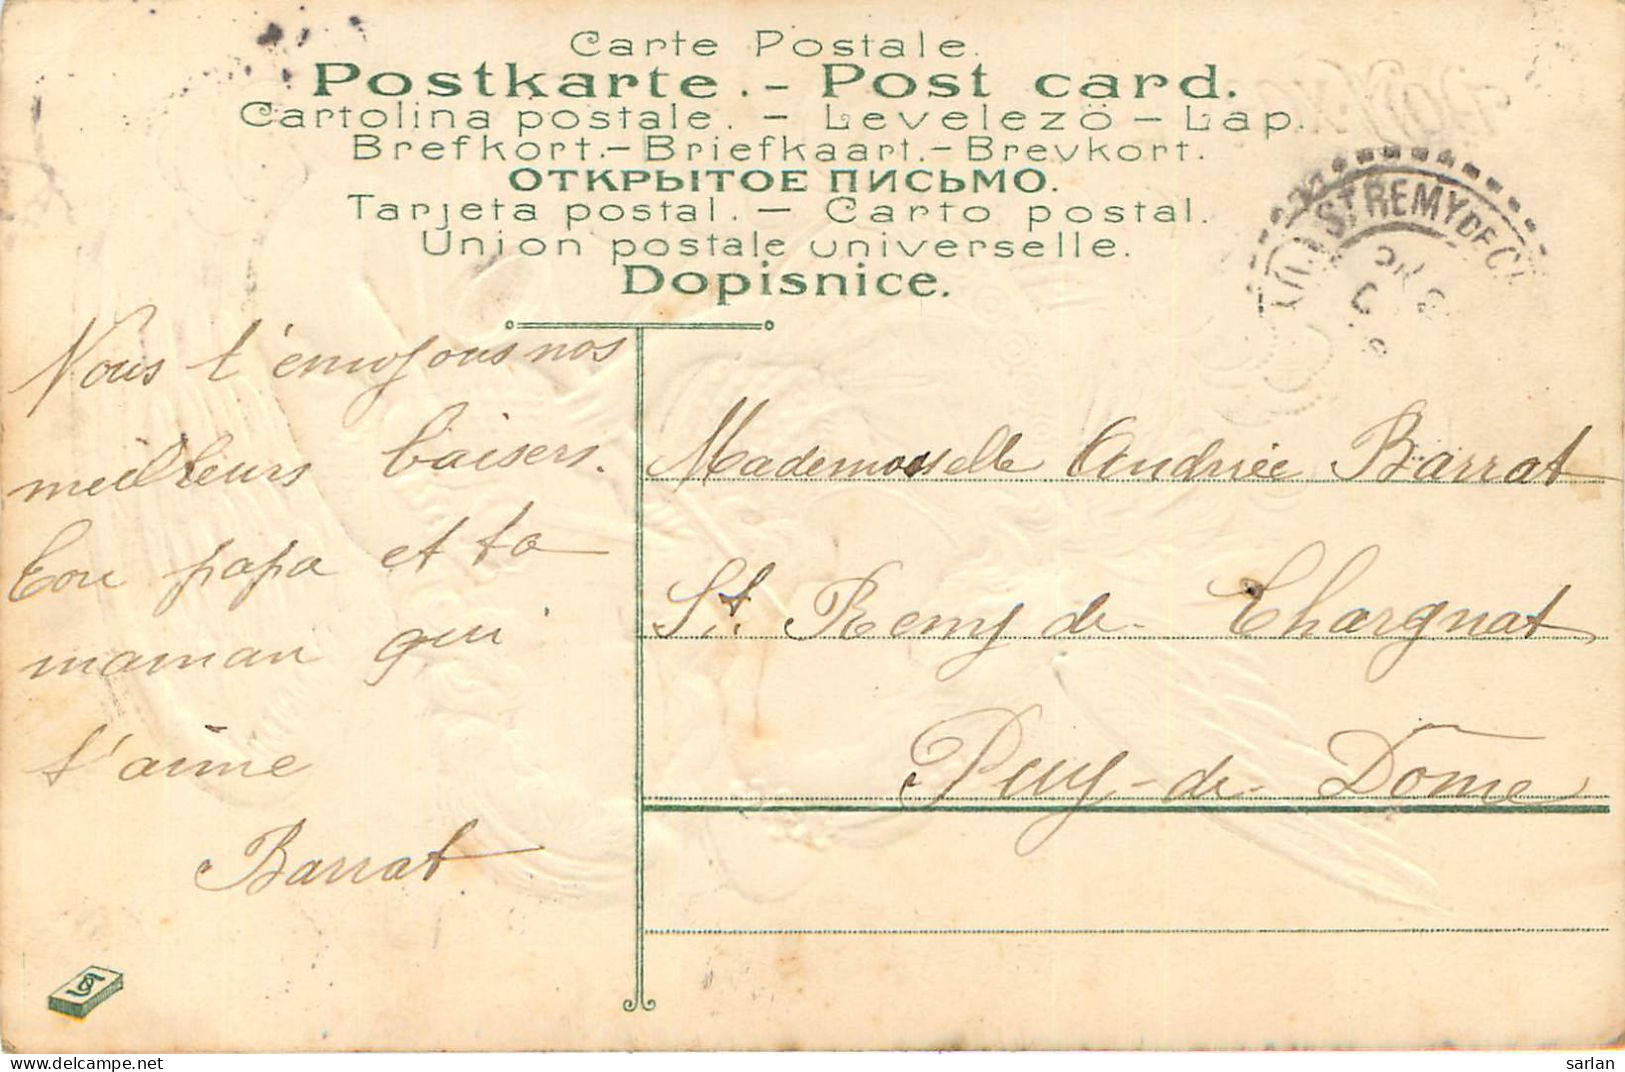 Carte Postale.
Postkarte. - Post card.
Cartolina postale. - Levelezö - Lap.
Brefkort. - Briefkaart. - Brevkort.
ОТКРЫТОЕ ПИСЬМО.
Tarjeta postal. - Carto postal.
Union postale universelle.
Dopisnice.
ST REMY DE C
Nous t'envoyons nos
meilleurs baisers.
Ton papa et ta
maman qui
t'aime
Barrat
Mademoiselle Andrée Barrat
St. Remy de Chargnat
Puy-de-Dome
delcampe.net
sarlan